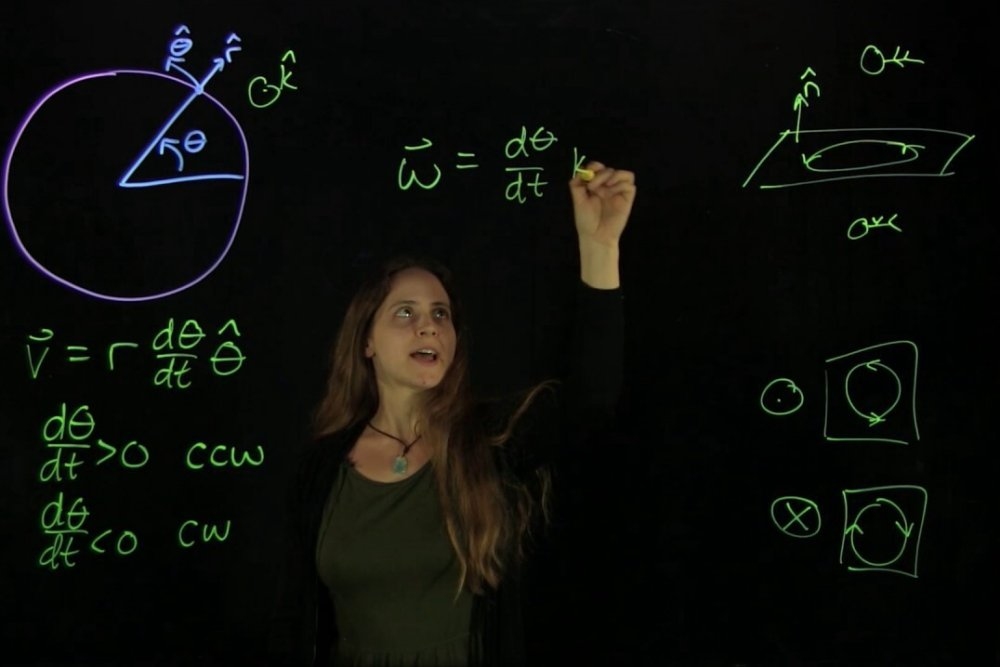 θ̂ r̂
k̂
θ
ω⃗ = dθ/dt k
n̂
v⃗ = r dθ/dt θ̂
dθ/dt >0 ccw
dθ/dt <0 cw